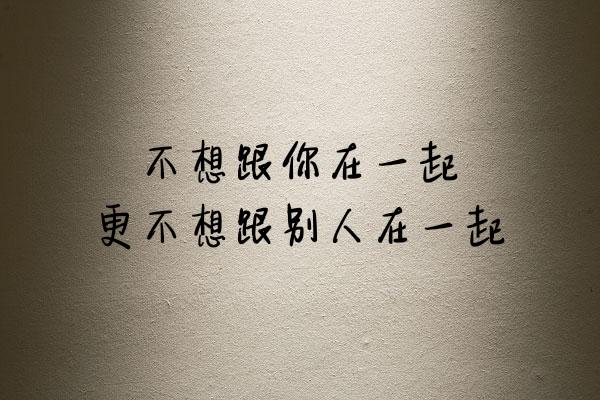 不想跟你在一起
更不想跟别人在一起